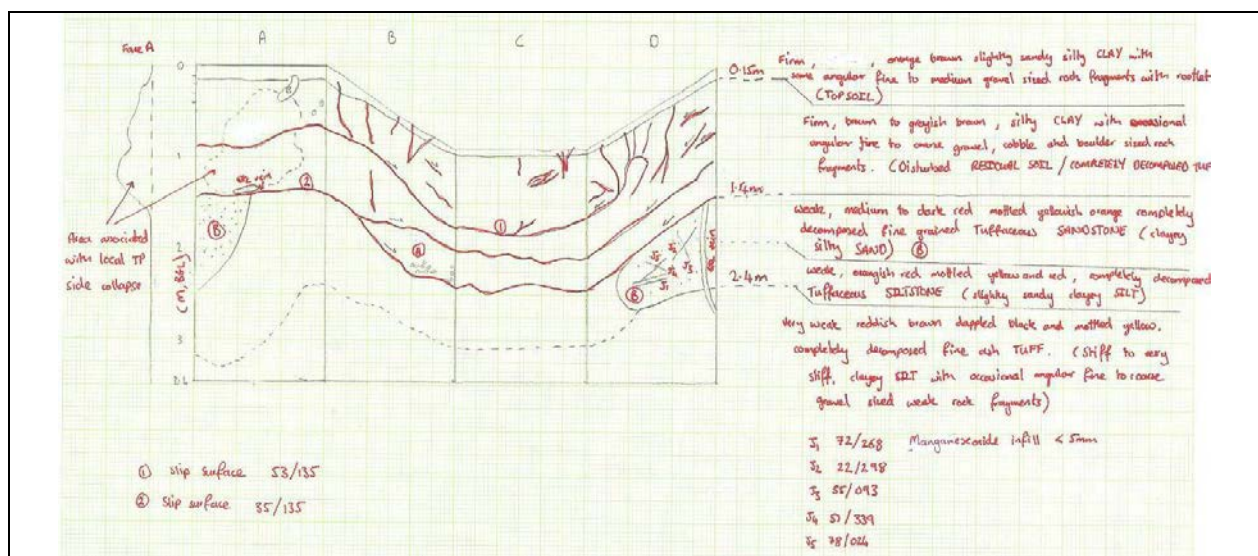 A B C D
Face A
0
1
2
3
(m, BGL)
Area associated
with local TP
side collapse
qtz vein
①
②
Ⓑ
Ⓐ
Ⓑ
J1
J2
J3
J4
J5
qtz vein
0.15m
Firm, orange brown slightly sandy silty CLAY with
some angular fine to medium gravel sized rock fragments with rootlet
(TOPSOIL)
Firm, brown to greyish brown, silty CLAY with occasional
angular fine to coarse gravel, cobble and boulder sized rock
fragments. (Disturbed RESIDUAL SOIL / COMPLETELY DECOMPOSED TUFF
weak, medium to dark red mottled yellowish orange completely
decomposed fine grained Tuffaceous SANDSTONE (clayey
silty SAND) Ⓑ
2.4m
weak, orangish red mottled yellow and red, completely decomposed
Tuffaceous SILTSTONE (slightly sandy clayey SILT)
very weak reddish brown dappled black and mottled yellow,
completely decomposed fine ash TUFF. (Stiff to very
stiff, clayey SILT with occasional angular fine to coarse
gravel sized weak rock fragments)
J1 72/268 Manganese oxide infill < 5mm
J2 22/298
J3 55/093
J4 51/339
J5 78/024
① slip surface 53/135
② slip surface 35/135